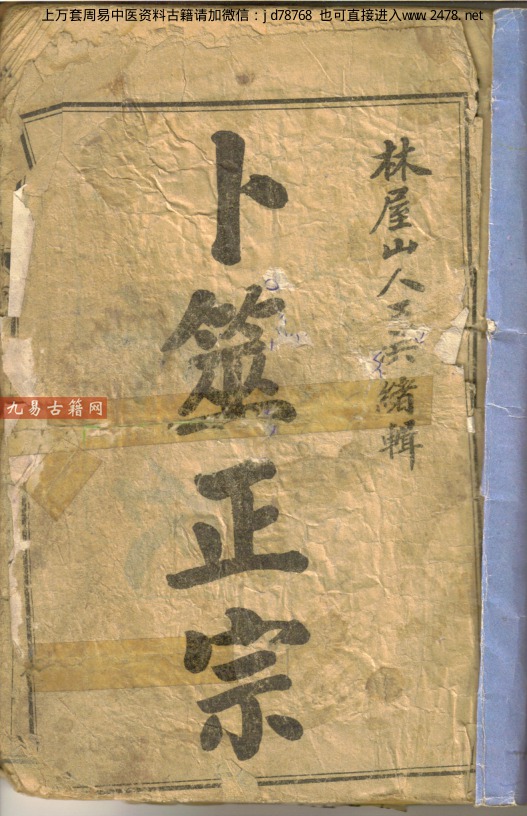 上万套周易中医资料古籍请加微信：jd78768 也可直接进入www.2478.net
林屋山人王洪緒輯
卜筮正宗
九易古籍网